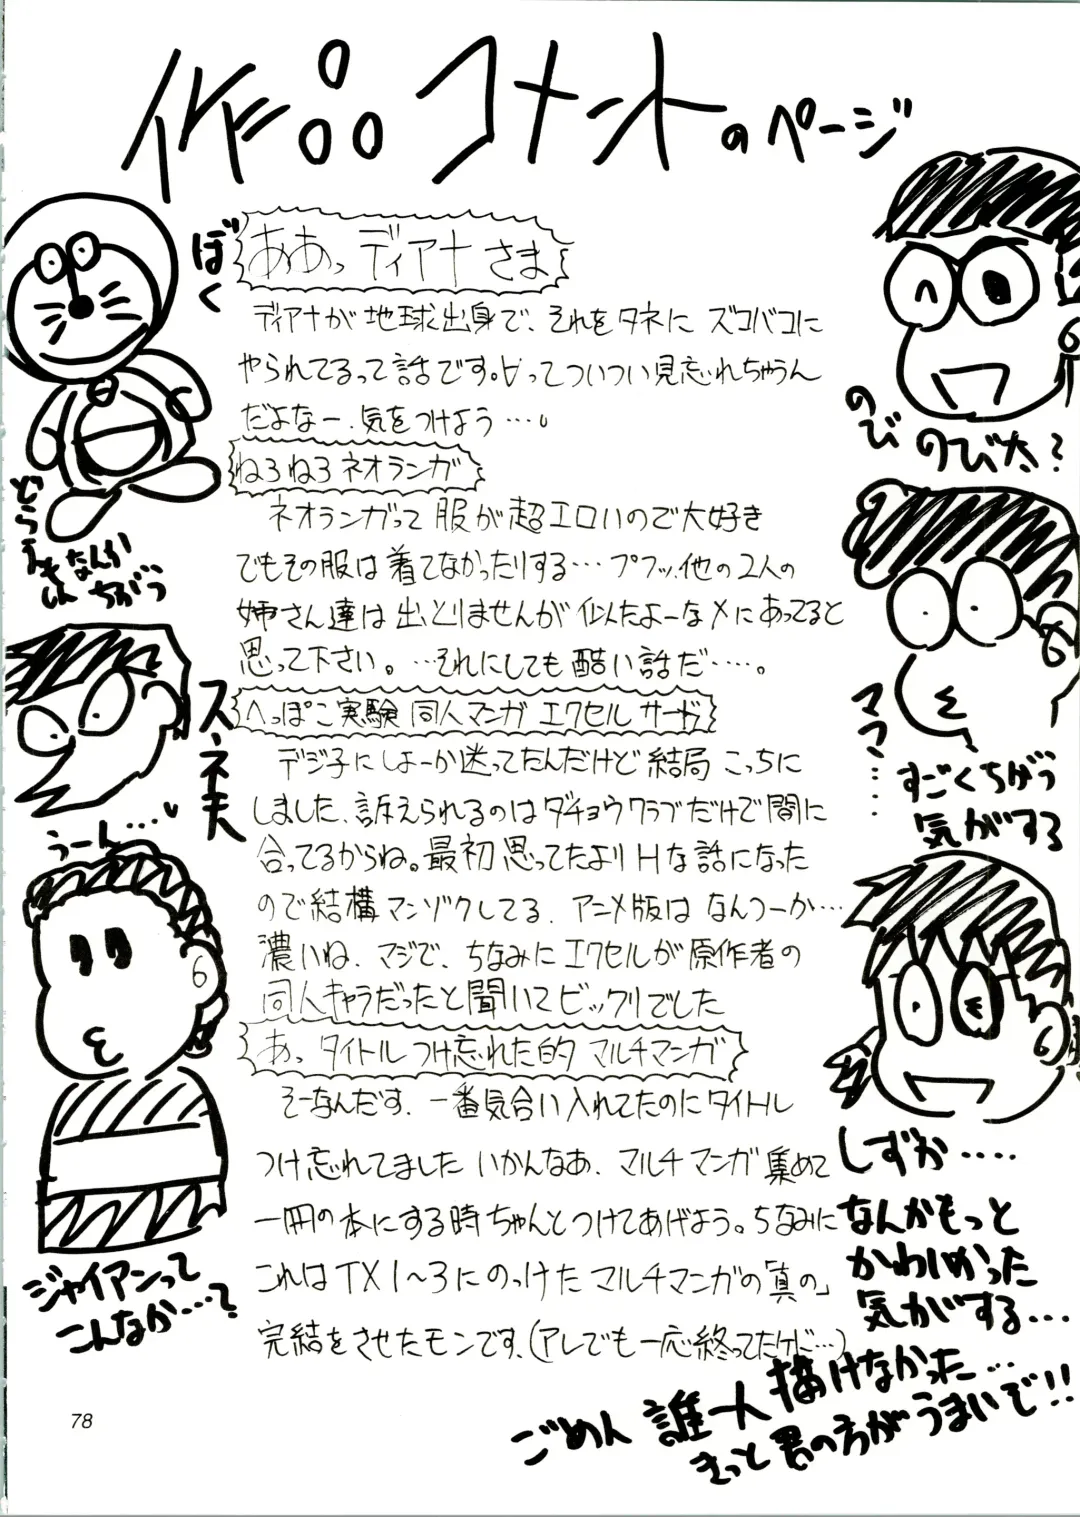 作品コメントのページ
ああっディアナさま
ディアナが地球出身で、それをタネにズコバコに
やられてるって話です。∀ってついつい見忘れちゃうん
だよなー、気をつけよう…。
ねろねろネオランガ
ネオランガって服が超エロいので大好き
でもその服は着てなかったりする…プフッ、他の2人の
姉さん達は出とりませんが似たよーなメにあってると
思って下さい。…それにしても酷い話だ……。
へっぽこ実験同人マンガ エクセルサード
デジ子にしよーか迷ってたんだけど結局こっちに
しました、訴えられるのはダチョウクラブだけで間に
合ってるからね。最初思ってたよりHな話になった
ので結構マンゾクしてる、アニメ版はなんつーか…
濃いね、マジで、ちなみにエクセルが原作者の
同人キャラだったと聞いてビックリでした
あっタイトルつけ忘れた的マルチマンガ
そーなんだす、一番気合い入れてたのにタイトル
つけ忘れてました いかんなあ、マルチマンガ集めて
一冊の本にする時ちゃんとつけてあげよう。ちなみに
これはTX1〜3にのっけたマルチマンガの「真の」
完結をさせたモンです、(アレでも一応終ってたけど…)
ぼく
どらえもん
なんか
ちがう
スネ夫
うーん…
ジャイアンって
こんなか…?
のび
のび太?
ママ……
すごくちがう
気がする
しずか……
なんかもっと
かわいかった
気がする…
ごめん 誰一人描けなかった…
きっと君の方がうまいで!!
78